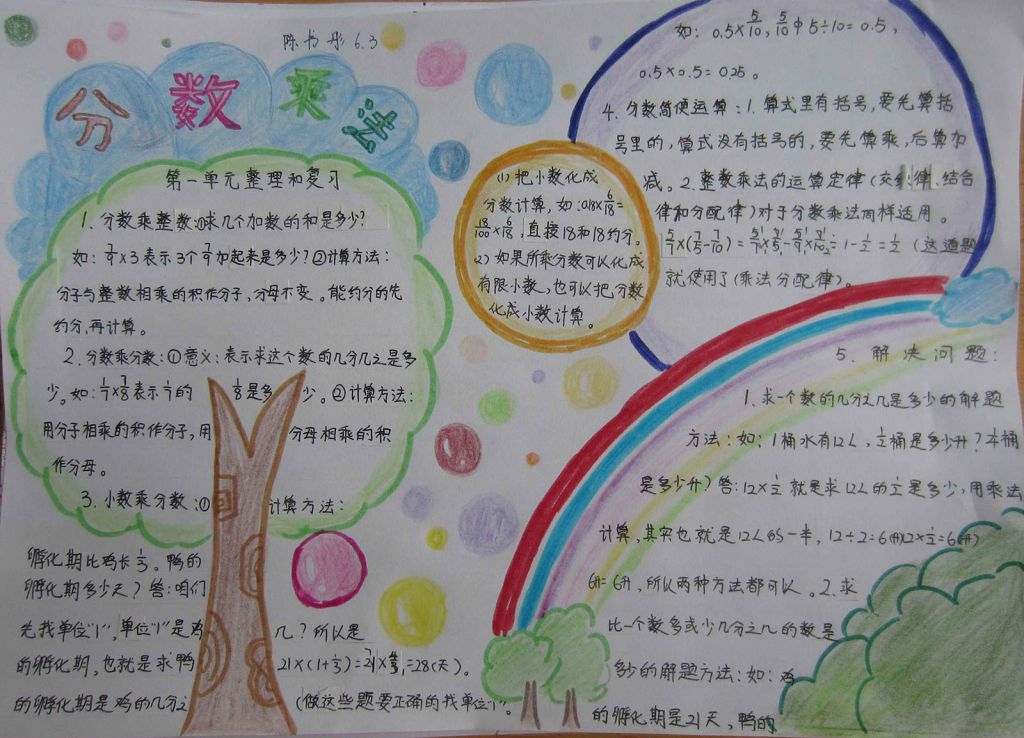 陈书彤 6.3
分数乘法
第一单元整理和复习
1. 分数乘整数:①求几个加数的和是多少?
如: 2/7×3表示3个2/7加起来是多少?②计算方法:
分子与整数相乘的积作分子,分母不变。能约分的先
约分,再计算。
2. 分数乘分数:①意义:表示求这个数的几分几之是多
少。如: 1/7×7/8表示1/7的 1/8是多少。②计算方法:
用分子相乘的积作分子,用 分母相乘的积
作分母。
3. 小数乘分数:① 计算方法:
(1) 把小数化成
分数计算,如:0.18×6/18=
18/100×6/18.直接18和18约分。
(2) 如果所乘分数可以化成
有限小数,也可以把分数
化成小数计算。
如: 0.5×5/10,5/10中5÷10=0.5,
0.5×0.5=0.25。
4. 分数简便运算:1.算式里有括号,要先算括
号里的,算式没有括号的,要先算乘,后算加
减。2.整数乘法的运算定律(交换律、结合
律和分配律)对于分数乘法同样适用。
=1-1/2=1/2 (这道题
就使用了(乘法分配律)。
5. 解决问题:
1.求一个数的几分之几是多少的解题
方法:如:1桶水有12L,1/2桶是多少升?
是多少升)答:12×1/2 就是求12L的1/2是多少,用乘法
计算,其实也就是12L的一半,12÷2=6(升)12×1/2=6(升)
6升=6升,所以两种方法都可以。2.求
比一个数多或少几分之几的数是
多少的解题方法:如:鸡
的孵化期是21天,鸭的
孵化期比鸡长1/3。鸭的
孵化期多少天?答:咱们
先找单位"1",单位"1"是鸡
的孵化期,也就是求鸭
的孵化期是鸡的几分之
几?所以是
21×(1+1/3)=21×4/3=28(天)。
(做这些题要正确的找单位"1"。